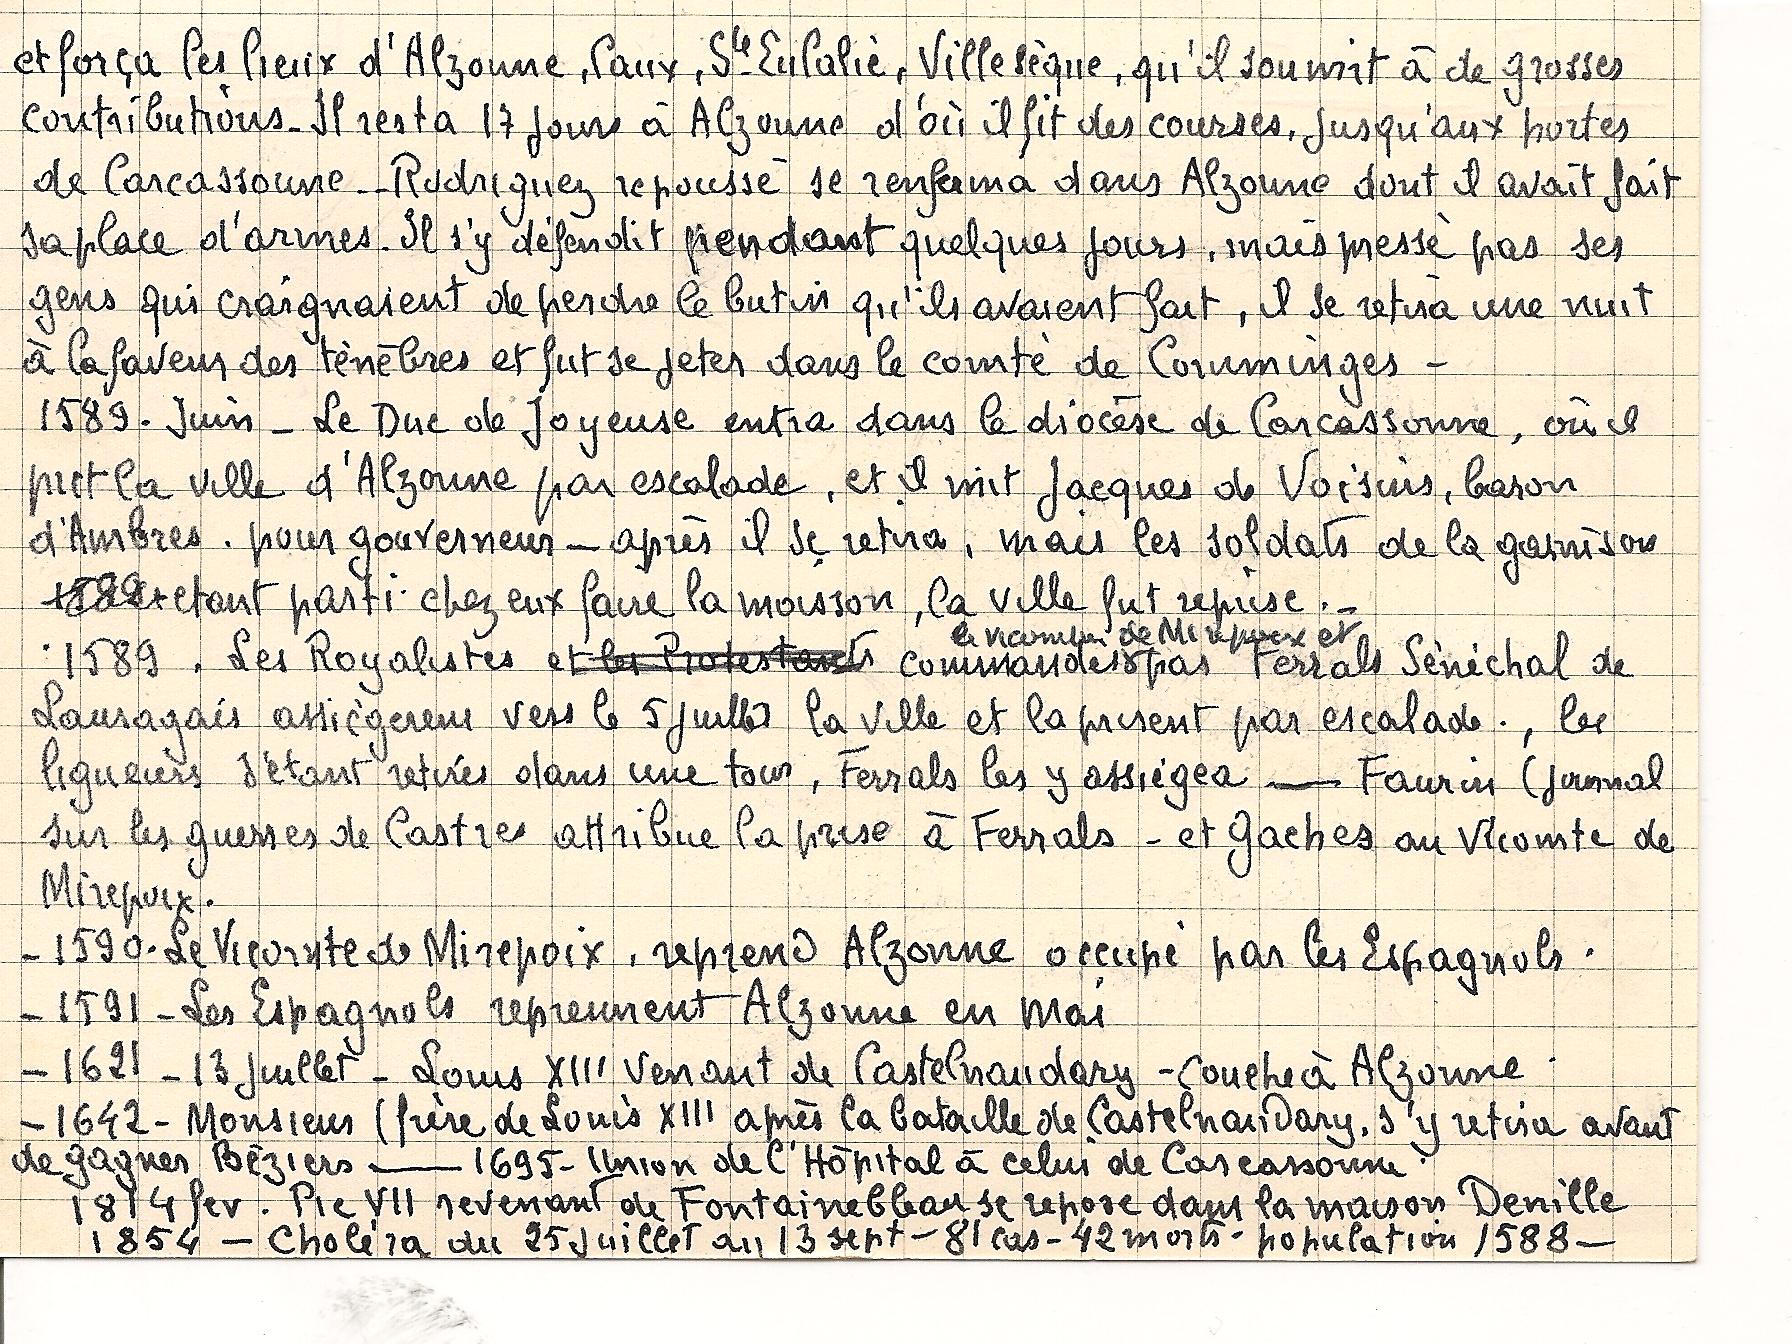 et força les lieux d'Alzonne, Caux, Ste Eulalie, Villesèque, qu'il soumit à de grosses
contributions_ Il resta 17 jours à Alzonne d'où il fit des courses, jusqu'aux portes
de Carcassonne _ Rodriguez repoussé se renferma dans Alzonne dont il avait fait
sa place d'armes. Il s'y défendit pendant quelques jours, mais pressé pas ses
gens qui craignaient de perdre le butin qu'ils avaient fait, il se retira une nuit
à la faveur des ténèbres et fut se jeter dans le comté de Comminges -
1589. Juin _ Le Duc de Joyeuse entra dans le diocèse de Carcassonne, où il
prit la ville d'Alzonne par escalade, et il mit Jacques de Voisins, baron
d'Ambres. pour gouverneur _ après il se retira, mais les soldats de la garnison
étant parti chez eux faire la moisson, la ville fut reprise. _
le vicomte de Mirepoix et
1589. Les Royalistes et les Protestants commandés par Ferrals Sénéchal de
Lauragais assiégèrent vers le 5 juillet la ville et la prisent par escalade., les
ligueurs s'étant retirés dans une tour, Ferrals les y assiégea __ Faurin (journal
sur les guerres de Castres attribue la prise à Ferrals - et Gaches au Vicomte de
Mirepoix.
- 1590. Le Vicomte de Mirepoix, reprend Alzonne occupé par les Espagnols.
- 1591 - Les Espagnols reprennent Alzonne en Mai
- 1621 - 13 Juillet - Louis XIII venant de Castelnaudary - couche à Alzonne.
- 1642 - Monsieur (frère de Louis XIII après la bataille de Castelnaudary, s'y retira avant
de gagner Béziers ___ 1695 - Union de l'Hôpital à celui de Carcassonne.
1814 fev. Pie VII revenant de Fontainebleau se repose dans la maison Denille
1854 - Choléra du 25 Juillet au 13 sept - 81 cas - 42 morts - population 1588 -